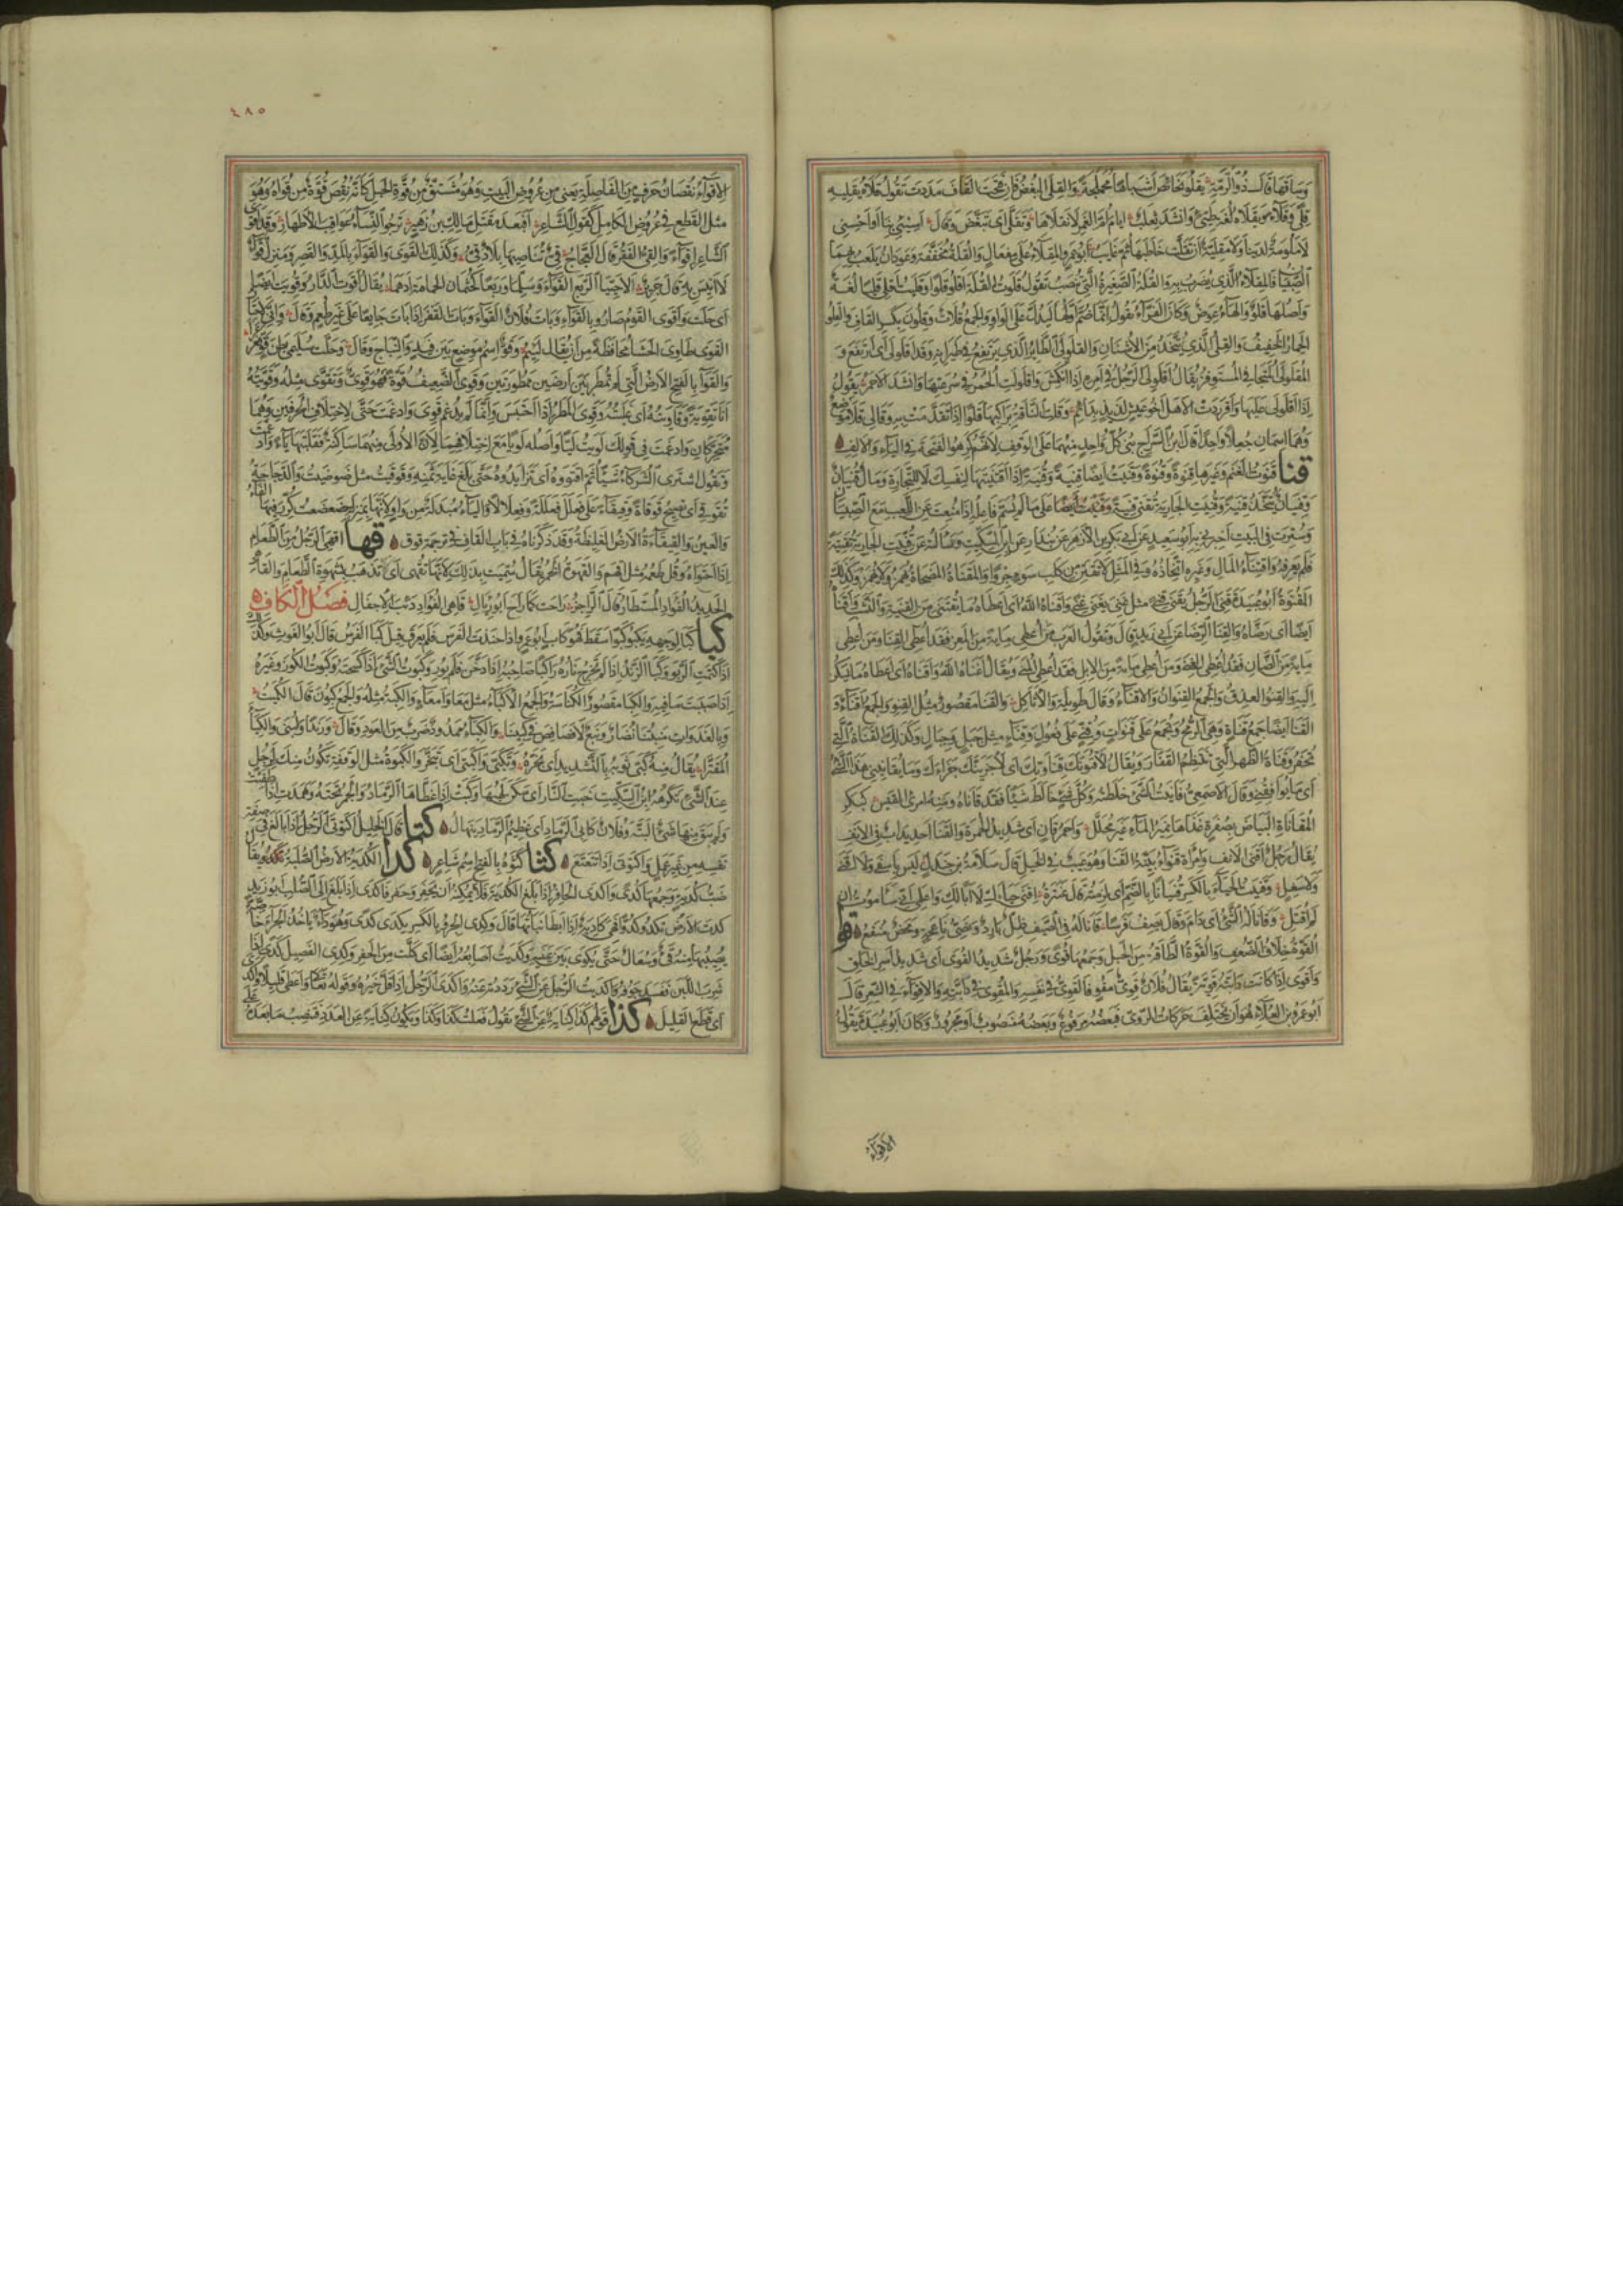 وساقها قال ذو الرمة يقلو نحائص اشباها محملجة والقلى البغض فان فتحت القاف مددت تقول قلاه يقليه
قلى وقلاء ويقلاه لغة طيئ وانشد ثعلب ايام ام الغمر لا نقلاها وتقلى اى تبغض وقال اسيئى بنا او احسنى
لا ملومة لدينا ولا مقلية ان تقلت خاطبها ثم غايب ابو عمرو المقلاء على مفعال والقلة مخففة وعودان يلعب بهما
الصبيان فالمقلاء الذى يضرب به والقلة الصغيرة التى تنصب تقول قلوت القلة اقلو قلوا وقليت اقلى قليا لغة
واصلها قلو والهاء عوض وكان الفراء يقول انما ضم اولها ليدل على الواو والجمع قلات وقلون بكسر القاف والقلو
الحمار الخفيف والقلى الذى يتخذ من الاشنان والقلولى الطائر الذى يرتفع فى طيرانه وقد اقلولى اى ارتفع و
المقلولى المتجافى المستوفز يقال اقلولى الرجل فى امره اذا انكمش واقلولت الحمر فى سرعتها وانشد الاحمر يقول
اذا اقلولى عليها واقردت الا هل اخو عيش لذيذ بدائم وقلت الناقة براكبها قلوا اذا تقدمت به وقالى قلا موضع
وهما اسمان جعلا واحدا قال ابن السراج بنى كل واحد منهما على الوقف لانهم كرهوا الفتحة فى الياء والالف
قنا قنوت الغنم وغيرها قنوة وقنوة وقنيت ايضا قنية وقنية اذا اقتنيتها لنفسك لا للتجارة ومال قنيان
وقنيان يتخذ قنية وقنيت الجارية تقنى قنية على ما لم يسم فاعله اذا منعت عن اللعب مع الصبيان
وسترت فى البيت اخبرنى به ابو سعيد عن ابى بكر بن الازهر عن بندار عن ابن السكيت وسالته عن قنيت الجارية تقنية
فلم يعرفه واقتناء المال وغيره اتخاذه وفى المثل لا تقتن من كلب سوء جروا والمقناة المضحاة يهمز ولا يهمز وكذلك
المقنوة ابو عبيدة قنى الرجل يقنى قنى مثل غنى يغنى غنى واقناه الله اى اعطاه ما يقتنى من القنية والنشب واقناه
ايضا اى رضاه والقنا الرضا عن ابى زيد قال وتقول العرب من اعطى ماية من المعز فقد اعطى القنا ومن اعطى
ماية من الضان فقد اعطى الغنى ومن اعطى ماية من الابل فقد اعطى المنى ويقال اغناه الله واقناه اى اعطاه ما يسكن
اليه والقنو العذق والجمع القنوان والاقناء وقال طويلة والاثاكل والقنا مقصور مثل القنو والجمع اقناء و
القنا ايضا جمع قناة وهى الرمح ويجمع على قنوات وقنى على فعول وقناء مثل جبل وجبال وكذلك القناة التى
تحفر وقناة الظهر التى تنتظم الفقار ويقال لاقنونك قناوتك اى لاجزينك جزاءك وما يقانينى هذا الشئ
اى ما يوافقنى وقال الاصمعى قانيت الشئ خلطته وكل شئ خالط شيئا فقد قاناه ومنه قول امرئ القيس كبكر
المقاناة البياض بصفرة غذاها نمير الماء غير محلل واحمر قان اى شديد الحمرة والقنا احديداب فى الانف
يقال رجل اقنى الانف وامراة قنواء بينة القنا وهو عيب فى الخيل قال سلامة بن جندل ليس باسفى ولا اقنى
ولا سغل وقنيت الحياء بالكسر قنيانا بالضم اى لزمته قال عنترة اقنى حياءك لا ابا لك واعلمى انى سا موت ان
لم اقتل وقانا له الشئ اى دام وقال يصف فرسا قانا له فى الصيف ظل بارد ونصى ناعجة ومحض منقع قوا
القوة خلاف الضعف والقوة الطاقة من الحبل وجمعها قوى ورجل شديد القوى اى شديد اسر الخلق
واقوى اذا كانت دابته قوية يقال فلان قوى مقو فالقوى فى نفسه والمقوى فى دابته والاقواء فى الشعر قال
ابو عمرو بن العلاء هو ان يختلف حركات الروى فبعضه مرفوع وبعضه منصوب او مجرور وكان ابو عبيدة يقول
الاقواء
٤٨٥
الاقواء نقصان حرف من الفاصلة يعنى من عروض البيت وهو مشتق من قوة الحبل كانه نقص قوة من قواه وهو
مثل القطع فى عروض الكامل كقول الشاعر افبعد مقتل مالك بن زهير ترجو النساء عواقب الاطهار وقد اقوى
الشاعر اقواء والقى القفر قال العجاج قى تناصيها بلاد قى وكذلك القوى والقواء بالمد والقصر ومنزل قواء
لا انيس به قال جرير الا حييا الربع القواء وسلما وربعا كجثمان الحمامة ادهما يقال اقوت الدار وقويت ايضا
اى خلت واقوى القوم صاروا بالقواء وبات فلان القواء وبات القفر اذا بات جايعا على غير طعم وقال وانى لاختار
القوى طاوى الحشا محافظة من ان يقال لئيم وقو اسم موضع بين فيد والنباج وقال وحلت سليمى بطن قو فعرعرا
والقواء بالفتح الارض التى لم تمطر بين ارضين ممطورتين وقوى الضعيف قوة فهو قوى وتقوى مثله وقويته
انا تقوية وقاويته اى غلبته وقوى المطر اذا احتبس وانما لم يدغم قوى وادغمت حى لاختلاف الحرفين وهما
متحركان وادغمت فى قولك لويت ليا واصله لويا مع اختلافهما لان الاولى منهما ساكنة فقلبتها ياء وادغمت
وتقول اشترى الشركاء شيئا ثم اقتووه اى تزايدوه حتى بلغ غاية ثمنه وقوقيت مثل ضوضيت والدجاجة
تقوقى اى تصيح قوقاة وقيقاء على فعلل فعللة وفعلالا والياء مبدلة من واو لانها بمنزلة ضعضعت كرر فيها الفاء
والعين والقيقاءة الارض الغليظة وقد ذكرناه فى باب القاف فى ترجمة قوق قها اقهى الرجل من الطعام
اذا اجتواه وقل طعمه مثل اقهم والقهوة الخمر يقال سميت بذلك لانها تقهى اى تذهب بشهوة الطعام والقاهى
الحديد الفؤاد المستطار قال الراجز راحت كما راح ابو رئال قاهى الفؤاد دئب الاجفال فصل الكاف
كبا كبا لوجهه يكبو كبوا سقط فهو كاب ابو عمرو اذا حنذت الفرس فلم يعرق قيل كبا الفرس قال ابو الغوث وكذلك
اذا كتمت الربو وكبا الزند اذا لم تخرج ناره واكبا صاحبه اذا دخن فلم يور وكبوت الشئ اذا كسحته وكبوت الكوز وغيره
اذا صببت ما فيه والكبا مقصور الكناسة والجمع الاكباء مثل معا وامعاء والكبة مثله والجمع كبون قال الكميت
وبالغدوات منبتنا نضار ونبع لا فصافص فى كبينا والكباء ممدود ضرب من العود وقال ورندا ولبنى والكباء
المقترا يقال منه كبى ثوبه بالتشديد اى بخره وتكبى واكتبى اى تبخر والكبوة مثل الوقفة تكون منك لرجل
عند الشئ تكرهه ابن السكيت خبت النار اى سكن لهبها وكبت اذا غطاها الرماد والجمر تحته وهمدت اذا طفئت
ولم يبق منها شئ البتة وفلان كابى الرماد اى عظيم الرماد ينهال كتا قال الخليل اكتوتى الرجل اذا بالغ فى صفة
نفسه من غير عمل واكتوتى اذا تتعتع كثا كثوة بالفتح اسم شاعر كدا الكدية الارض الصلبة يقال
ضب كدية وجمعها كدى واكدى الحافر اذا بلغ الكدية فلا يمكنه ان يحفر وحفر فاكدى اذا بلغ الى الصلب ابو زيد
كدت الارض تكدو كدوا فهى كادية اذا ابطا نباتها قال وكدى الجرو بالكسر يكدى كدى وهو داء ياخذ الجراء خاصة
يصيبها منه قئ وسعال حتى يكوى بين عينيه وكديت اصابعه ايضا اى كلت من الحفر وكدى الفصيل كدى اذا
شرب اللبن ففسد جوفه واكديت الرجل عن الشئ رددته عنه واكدى الرجل اذا قل خيره وقوله تعالى واعطى قليلا واكدى
اى قطع القليل كذا قولهم كذا كناية عن الشئ تقول فعلت كذا وكذا ويكون كناية عن العدد فتنصب ما بعده على